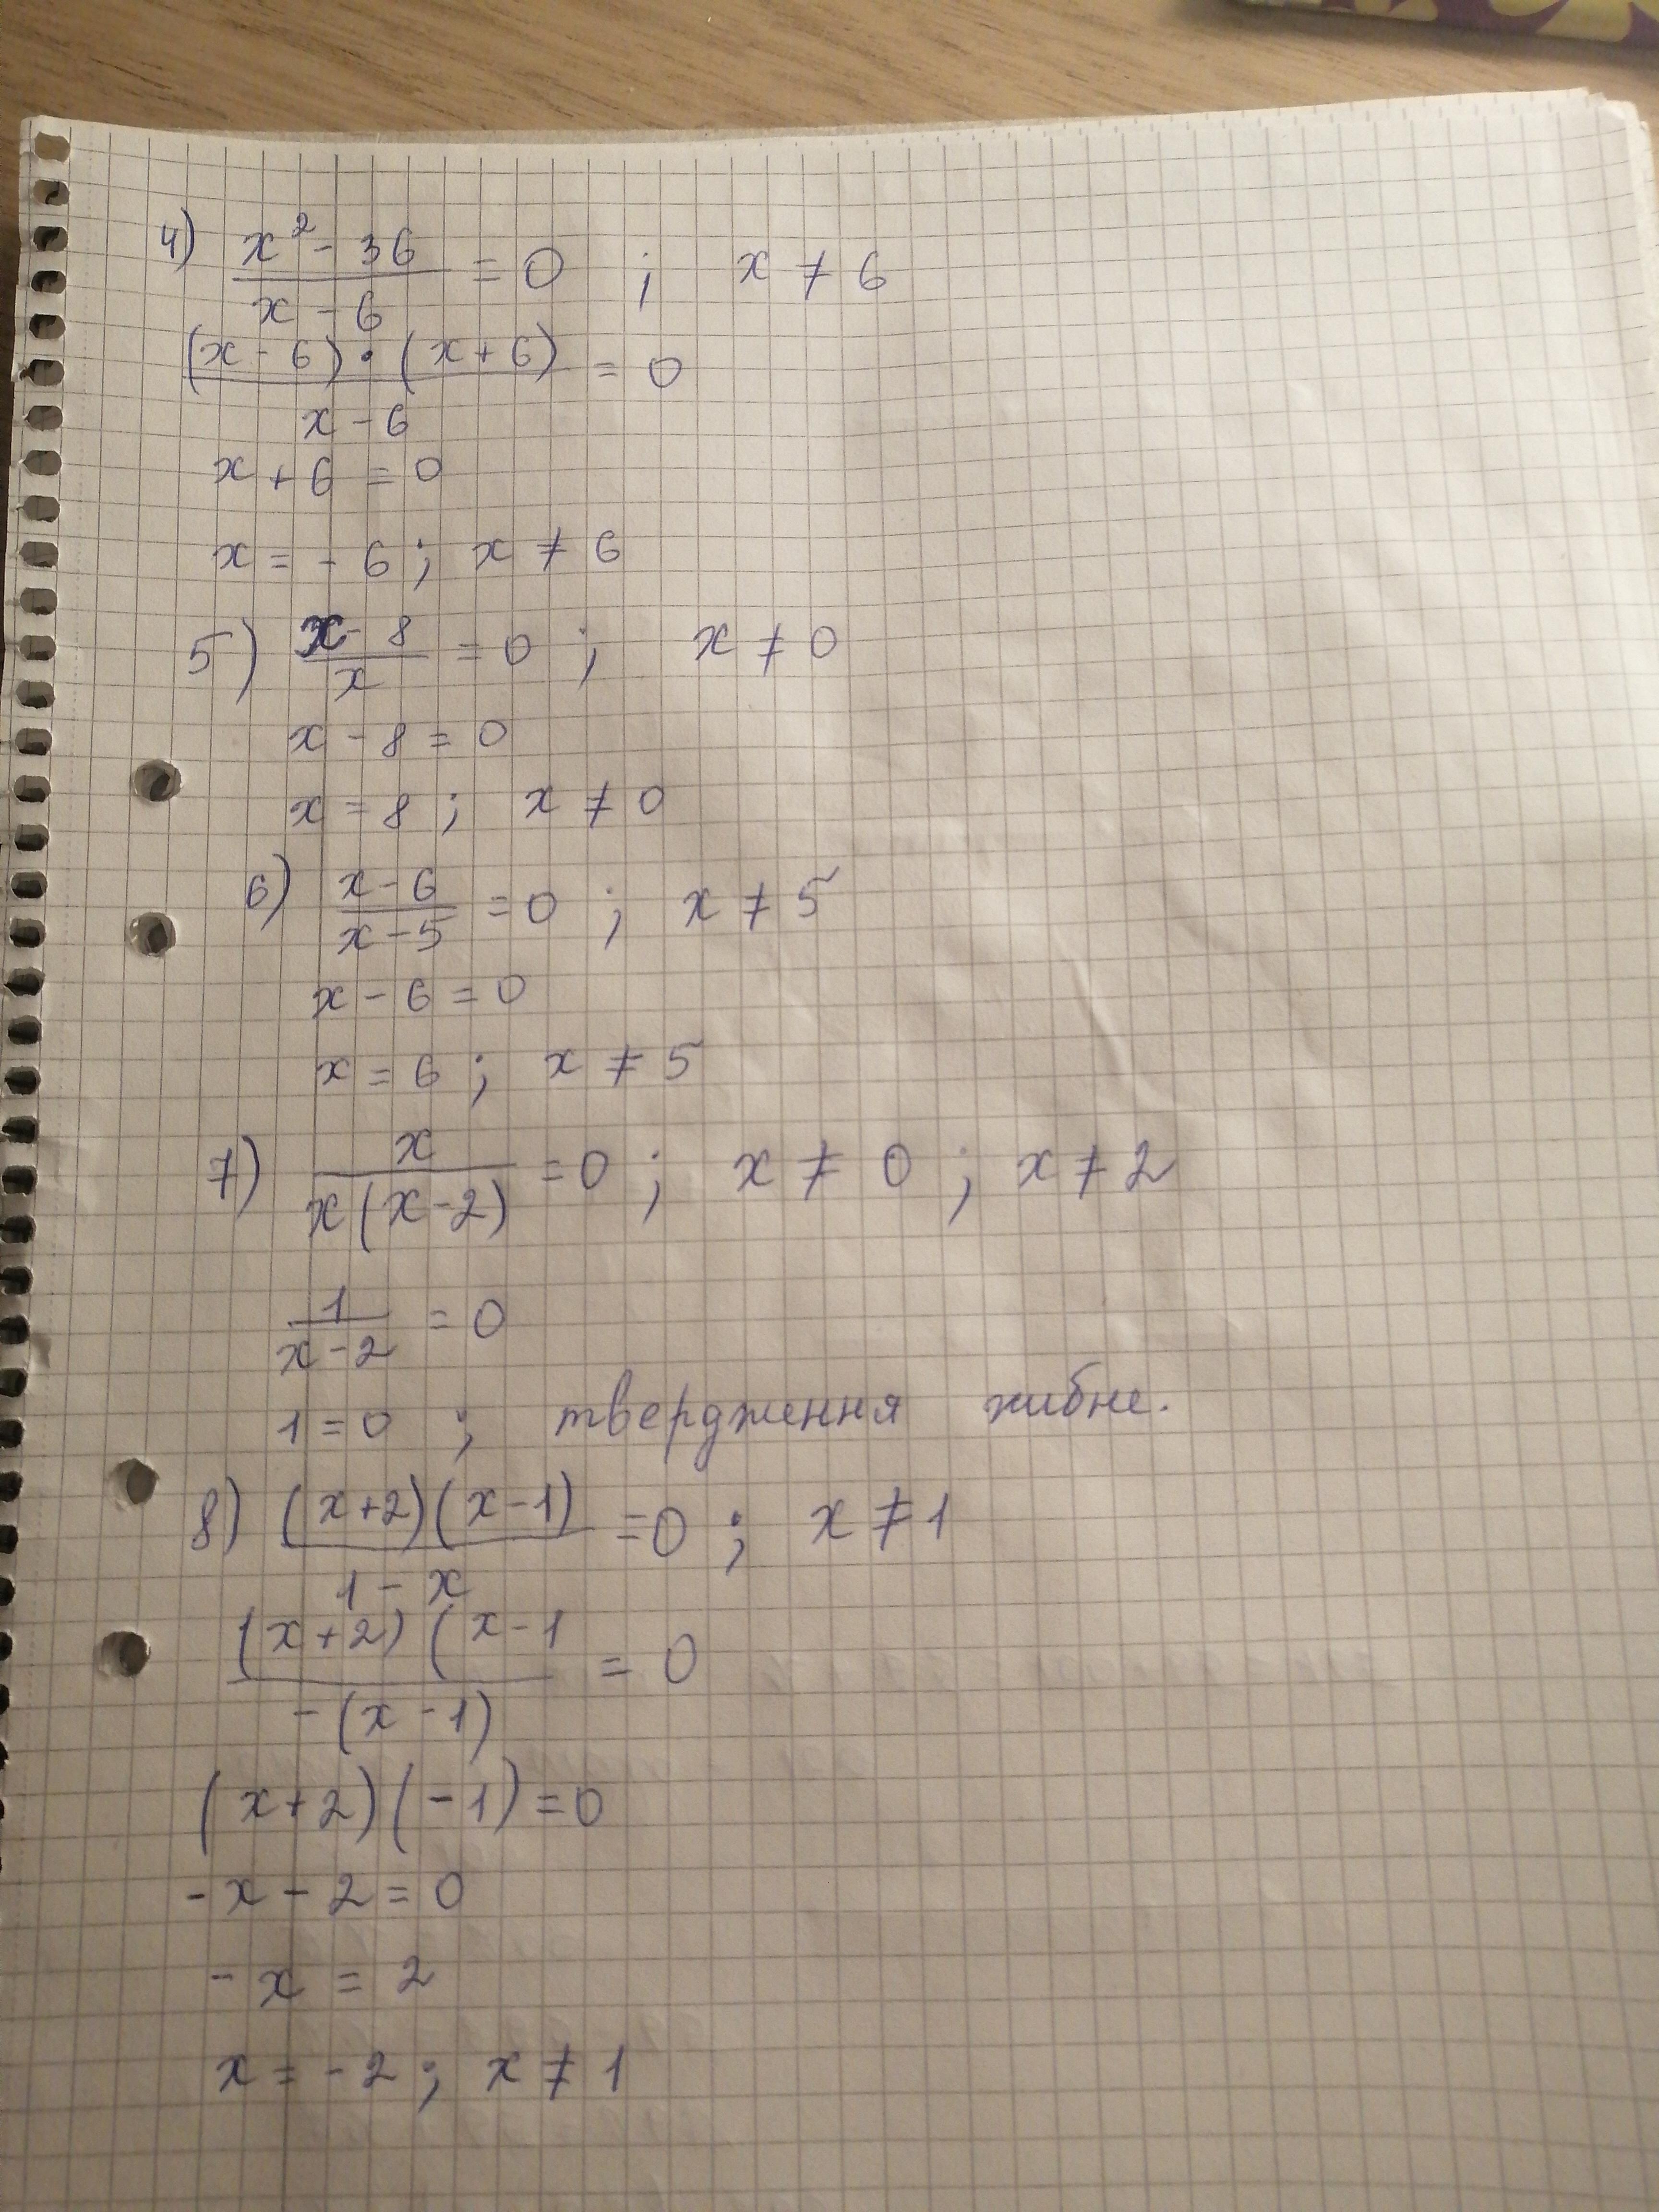 4) (x² - 36)/(x - 6) = 0 ; x ≠ 6
((x - 6) • (x + 6))/(x - 6) = 0
x + 6 = 0
x = - 6 ; x ≠ 6
5) (x - 8)/x = 0 ; x ≠ 0
x - 8 = 0
x = 8 ; x ≠ 0
6) (x - 6)/(x - 5) = 0 ; x ≠ 5
x - 6 = 0
x = 6 ; x ≠ 5
7) x/(x(x - 2)) = 0 ; x ≠ 0 ; x ≠ 2
1/(x - 2) = 0
1 = 0 ; твердження хибне.
8) ((x+2)(x-1))/(1 - x) = 0 ; x ≠ 1
((x+2)(x-1)/(-(x-1)) = 0
(x+2)(-1) = 0
-x - 2 = 0
-x = 2
x = -2 ; x ≠ 1